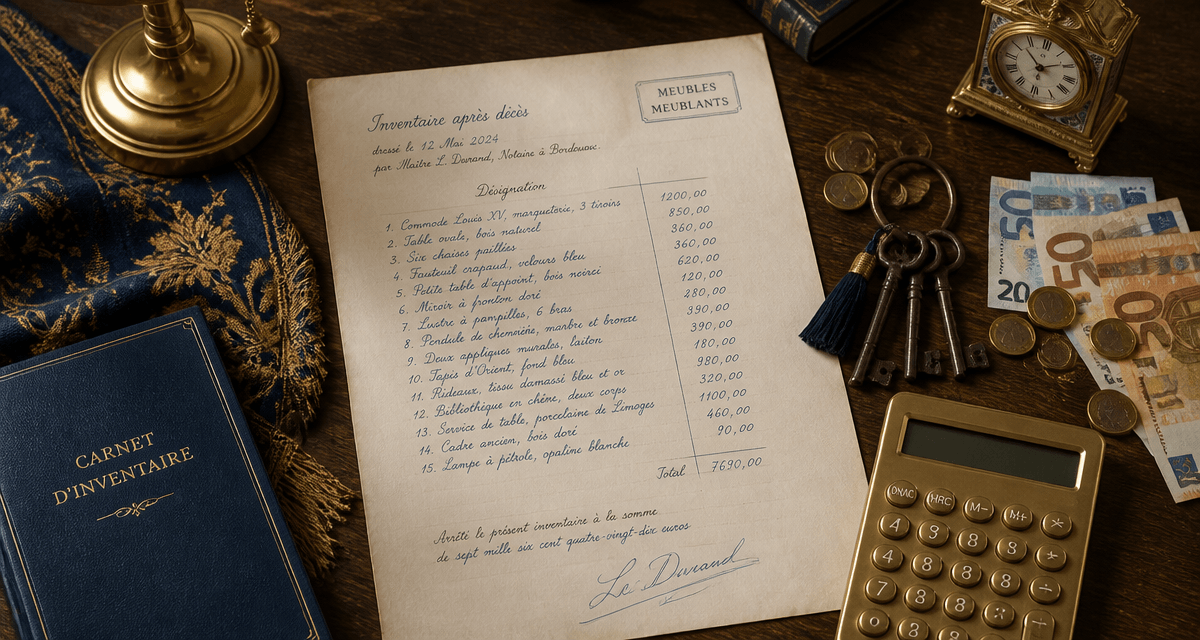 MEUBLES
MEUBLANTS
Inventaire après décès
dressé le 12 Mai 2024
par Maître L. Notaire à
Désignation
1. Commode Louis XV, marqueterie, 3 tiroins 1200,00
2. Table ovale, bois naturel 850,00
3. Six chaises paillées 360,00
4. Fauteuil crapaud, velours bleu 360,00
5. Petite table d'appoint, bois noirci 620,00
6. Miroir à fronton doré 120,00
7. Lustre à pampilles, 6 bras 280,00
8. Pendule de cheminée, marbre et bronze 390,00
9. Deux appliques murales, laiton 390,00
10. Tapis d'Orient, fond bleu 180,00
11. Rideaux, tissu damassé bleu et or 980,00
12. Bibliothèque en chêne, deux corps 320,00
13. Service de table, porcelaine de Limoges 1100,00
14. Cadre ancien, bois doré 460,00
15. Lampe à pétrole, opaline blanche 90,00
Total 7690,00
Arrêté le présent inventaire à la somme
de sept mille six cent quatre-vingt-dix euros
Le Durand
CARNET
D'INVENTAIRE
50
20
50
HRC M− M+ ×
4 9 8 8
4 8 8 8 ÷
7 8 8
0 8 8